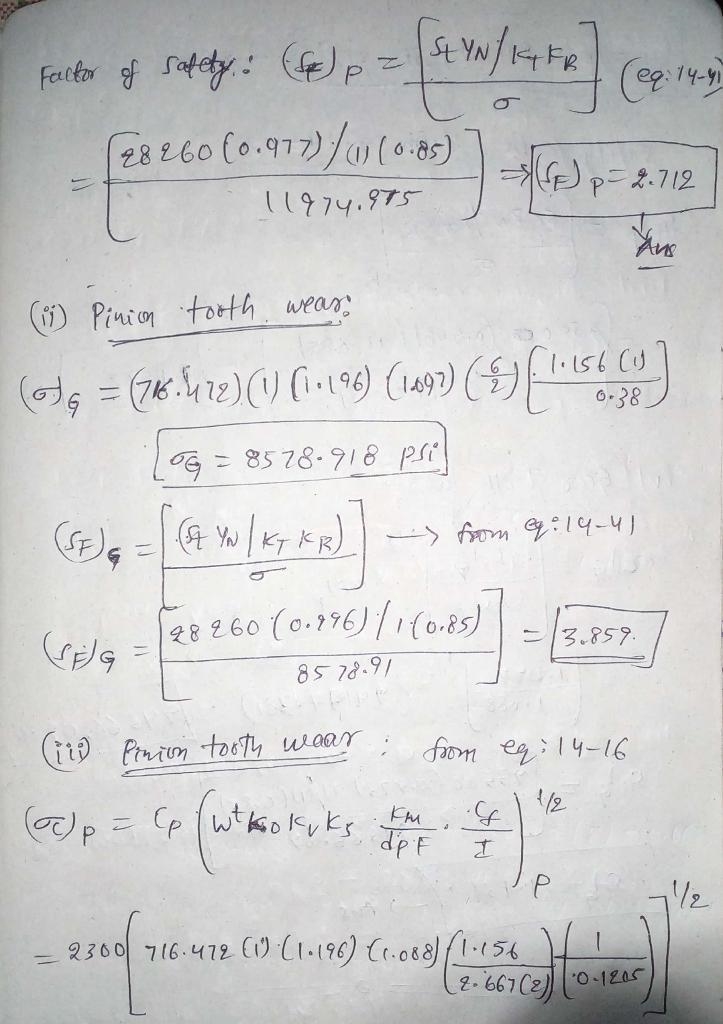 Factor of safety: (SF)P = [St YN / KT KR / σ] (eq: 14-41)
= [28260 (0.977) / (1) (0.85) / 11974.975] ⇒ (SF)P = 2.712
Ans
(ii) Pinion tooth wear:
(σ)G = (716.472) (1) (1.196) (1.097) (6/2) [1.156 (1) / 0.38]
σG = 8578.918 psi
(SF)G = [(St YN / KT KR) / σ] → from eq: 14-41
(SF)G = [28260 (0.996) / 1 (0.85) / 8578.91] = 3.859.
(iii) Pinion tooth wear : from eq: 14-16
(σc)P = Cp (Wt Ko Kv Ks Km / dpF · Cf / I)P 1/2
= 2300 [716.472 (1) (1.196) (1.088) (1.156 / 2.667 (2)) (1 / 0.1205)] 1/2